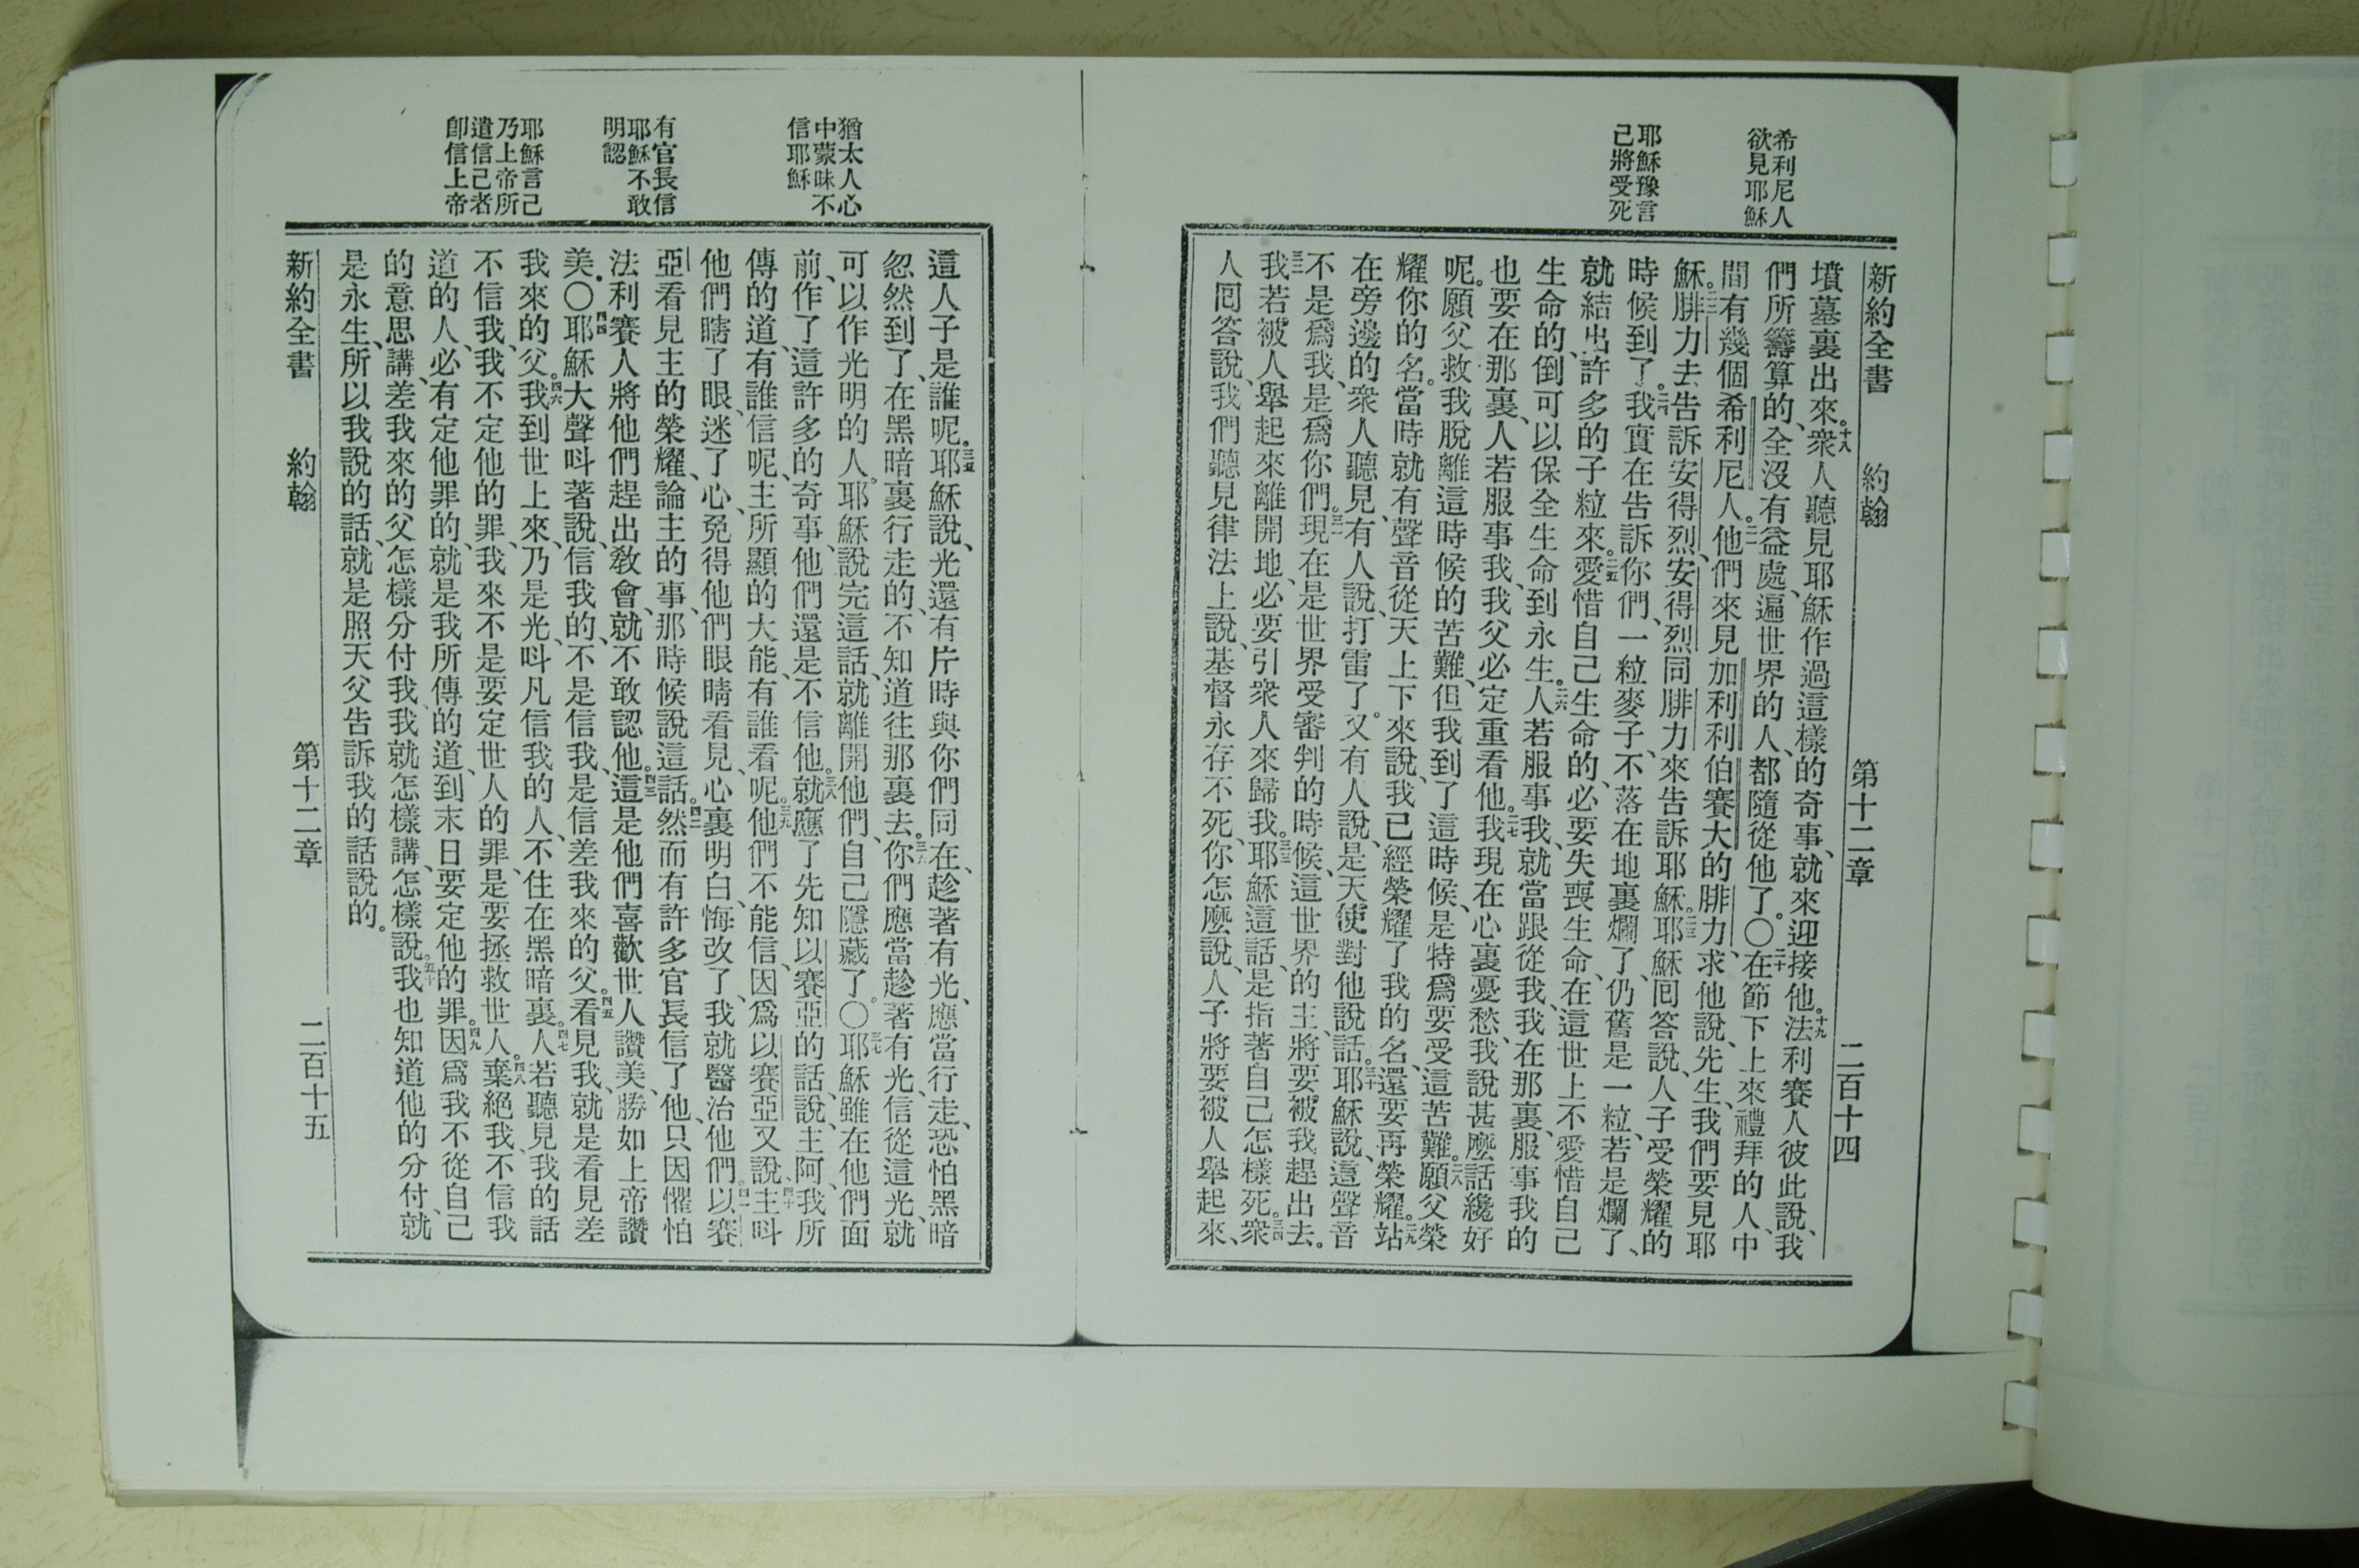 希利尼人
欲見耶穌
耶穌豫言
己將受死
新約全書 約翰 第十二章 二百十四
墳墓裏出來。十八衆人聽見耶穌作過這樣的奇事、就來迎接他。十九法利賽人彼此說、我
們所籌算的、全沒有益處、遍世界的人、都隨從他了。〇二十在節下上來禮拜的人、中
間有幾個希利尼人。二一他們來見加利利伯賽大的腓力、求他說、先生、我們要見耶
穌。二二腓力去告訴安得烈、安得烈同腓力來告訴耶穌。二三耶穌囘答說、人子受榮耀的
時候到了。二四我實在告訴你們、一粒麥子、不落在地裏爛了、仍舊是一粒、若是爛了、
就結出許多的子粒來。二五愛惜自己生命的、必要失喪生命、在這世上不愛惜自己
生命的、倒可以保全生命到永生。二六人若服事我、就當跟從我、我在那裏、服事我的
也要在那裏、人若服事我、我父必定重看他。二七我現在心裏憂愁、我說甚麼話纔好
呢。願父救我脫離這時候的苦難、但我到了這時候、是特爲要受這苦難。二八願父榮
耀你的名。當時就有聲音從天上下來說、我已經榮耀了我的名、還要再榮耀。二九站
在旁邊的衆人聽見、有人說、打雷了。又有人說、是天使對他說話。三十耶穌說、這聲音
不是爲我、是爲你們。三一現在是世界受審判的時候、這世界的主、將要被我趕出去。
三二我若被人舉起來離開地、必要引衆人來歸我。三三耶穌這話、是指著自己怎樣死。三四衆
人囘答說、我們聽見律法上說、基督永存不死、你怎麼說、人子將要被人舉起來、
猶太人心
中蒙昧不
信耶穌
有官長信
耶穌不敢
明認
耶穌言己
乃上帝所
遣信己者
卽信上帝
這人子是誰呢。三五耶穌說、光還有片時與你們同在、趁著有光、應當行走、恐怕黑暗
忽然到了、在黑暗裏行走的、不知道往那裏去。三六你們應當趁著有光、信從這光、就
可以作光明的人。耶穌說完這話、就離開他們、自己隱藏了。〇三七耶穌雖在他們面
前、作了這許多的奇事、他們還是不信他。三八就應了先知以賽亞的話、說、主阿、我所
傳的道、有誰信呢、主所顯的大能、有誰看呢。三九他們不能信、因爲以賽亞又說、四十主呌
他們瞎了眼、迷了心、免得他們眼睛看見、心裏明白、悔改了、我就醫治他們。四一以賽
亞看見主的榮耀、論主的事、那時候說這話。四二然而有許多官長信了他、只因懼怕
法利賽人將他們趕出敎會、就不敢認他。四三這是他們喜歡世人讚美、勝如上帝讚
美。〇四四耶穌大聲呌著說、信我的、不是信我、是信差我來的父。四五看見我、就是看見差
我來的父。四六我到世上來、乃是光、呌凡信我的人、不住在黑暗裏。四七人若聽見我的話
不信我、我不定他的罪、我來不是要定世人的罪、是要拯救世人。四八棄絕我、不信我
道的人、必有定他罪的、就是我所傳的道、到末日要定他的罪。四九因爲我不從自己
的意思講、差我來的父、怎樣分付我、我就怎樣講、怎樣說。五十我也知道他的分付、就
是永生、所以我說的話、就是照天父告訴我的話說的。
新約全書 約翰 第十二章 二百十五